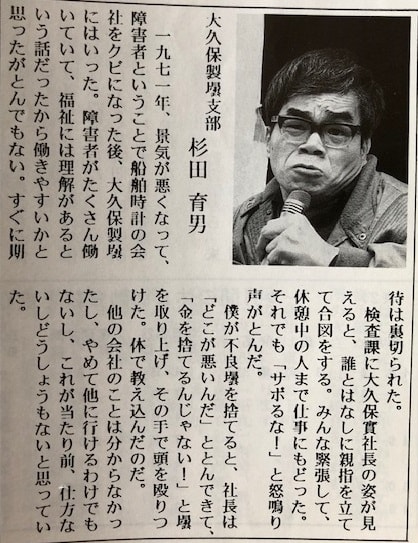 大久保製壜支部
杉田 育男
一九七一年、景気が悪くなって、
障害者ということで船舶時計の会
社をクビになった後、大久保製壜
にはいった。障害者がたくさん働
いていて、福祉には理解があると
いう話だったから働きやすいかと
思ったがとんでもない。すぐに期
待は裏切られた。
検査課に大久保實社長の姿が見
えると、誰とはなしに親指を立て
て合図をする。みんな緊張して、
休憩中の人まで仕事にもどった。
それでも「サボるな！」と怒鳴り
声がとんだ。
僕が不良壜を捨てると、社長は
「どこが悪いんだ」ととんできて、
「金を捨てるんじゃない！」と壜
を取り上げ、その手で頭を殴りつ
けた。体で教え込んだのだ。
他の会社のことは分からなかっ
たし、やめて他に行けるわけでも
ないし、これが当たり前、仕方な
いしどうしょうもないと思ってい
た。